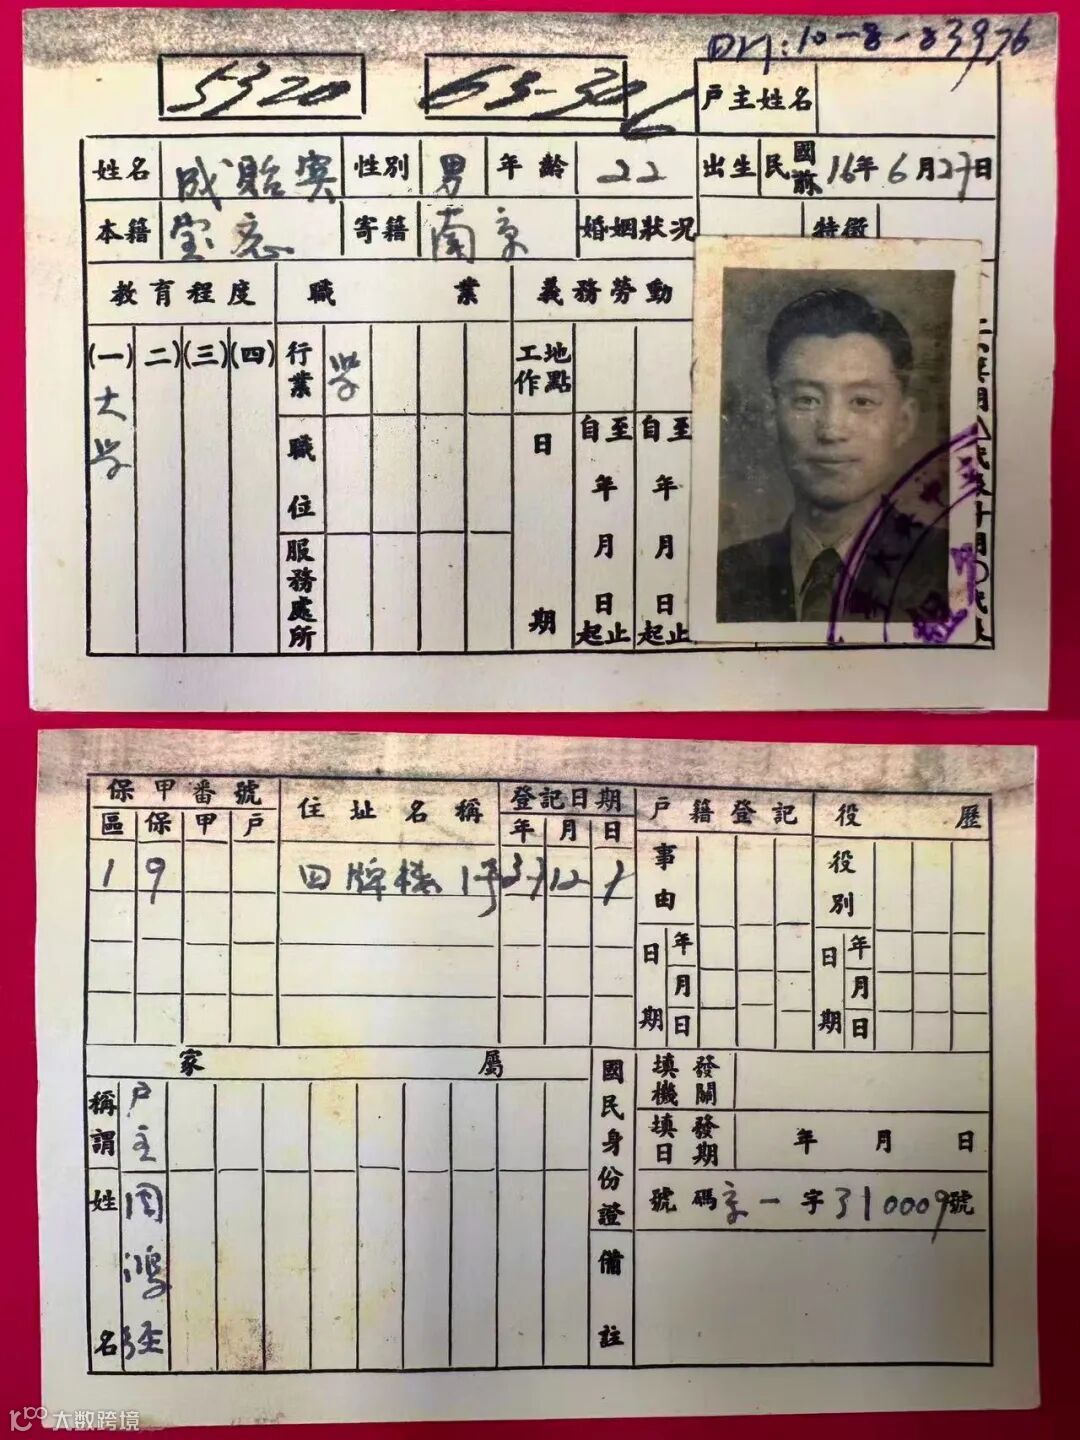 DM:10-8-83976
5320
63-30
戶主姓名
姓名 成貽宾 性別 男 年齡 22 出生 民國前 16年6月27日
本籍 宝应 寄籍 南京 婚姻狀况 特徵
教育程度 職業 義務勞動
(一) (二) (三) (四) 行業 学 工作地點
大学
職位
日期 自年月日起 至年月日止 自年月日起 至年月日止
服務處所
保甲番號 住址名稱 登記日期 戶籍登記 役歷
區 保 甲 戶 年 月 日 事由 役別
1 9 四牌楼1号 37 12
日期 年 月 日 日期 年 月 日
家屬 國民身份證 填發機關
稱謂 戶主 填發日期 年 月 日
姓名 周鴻经 號碼 京一字310009號
備註
大数跨境